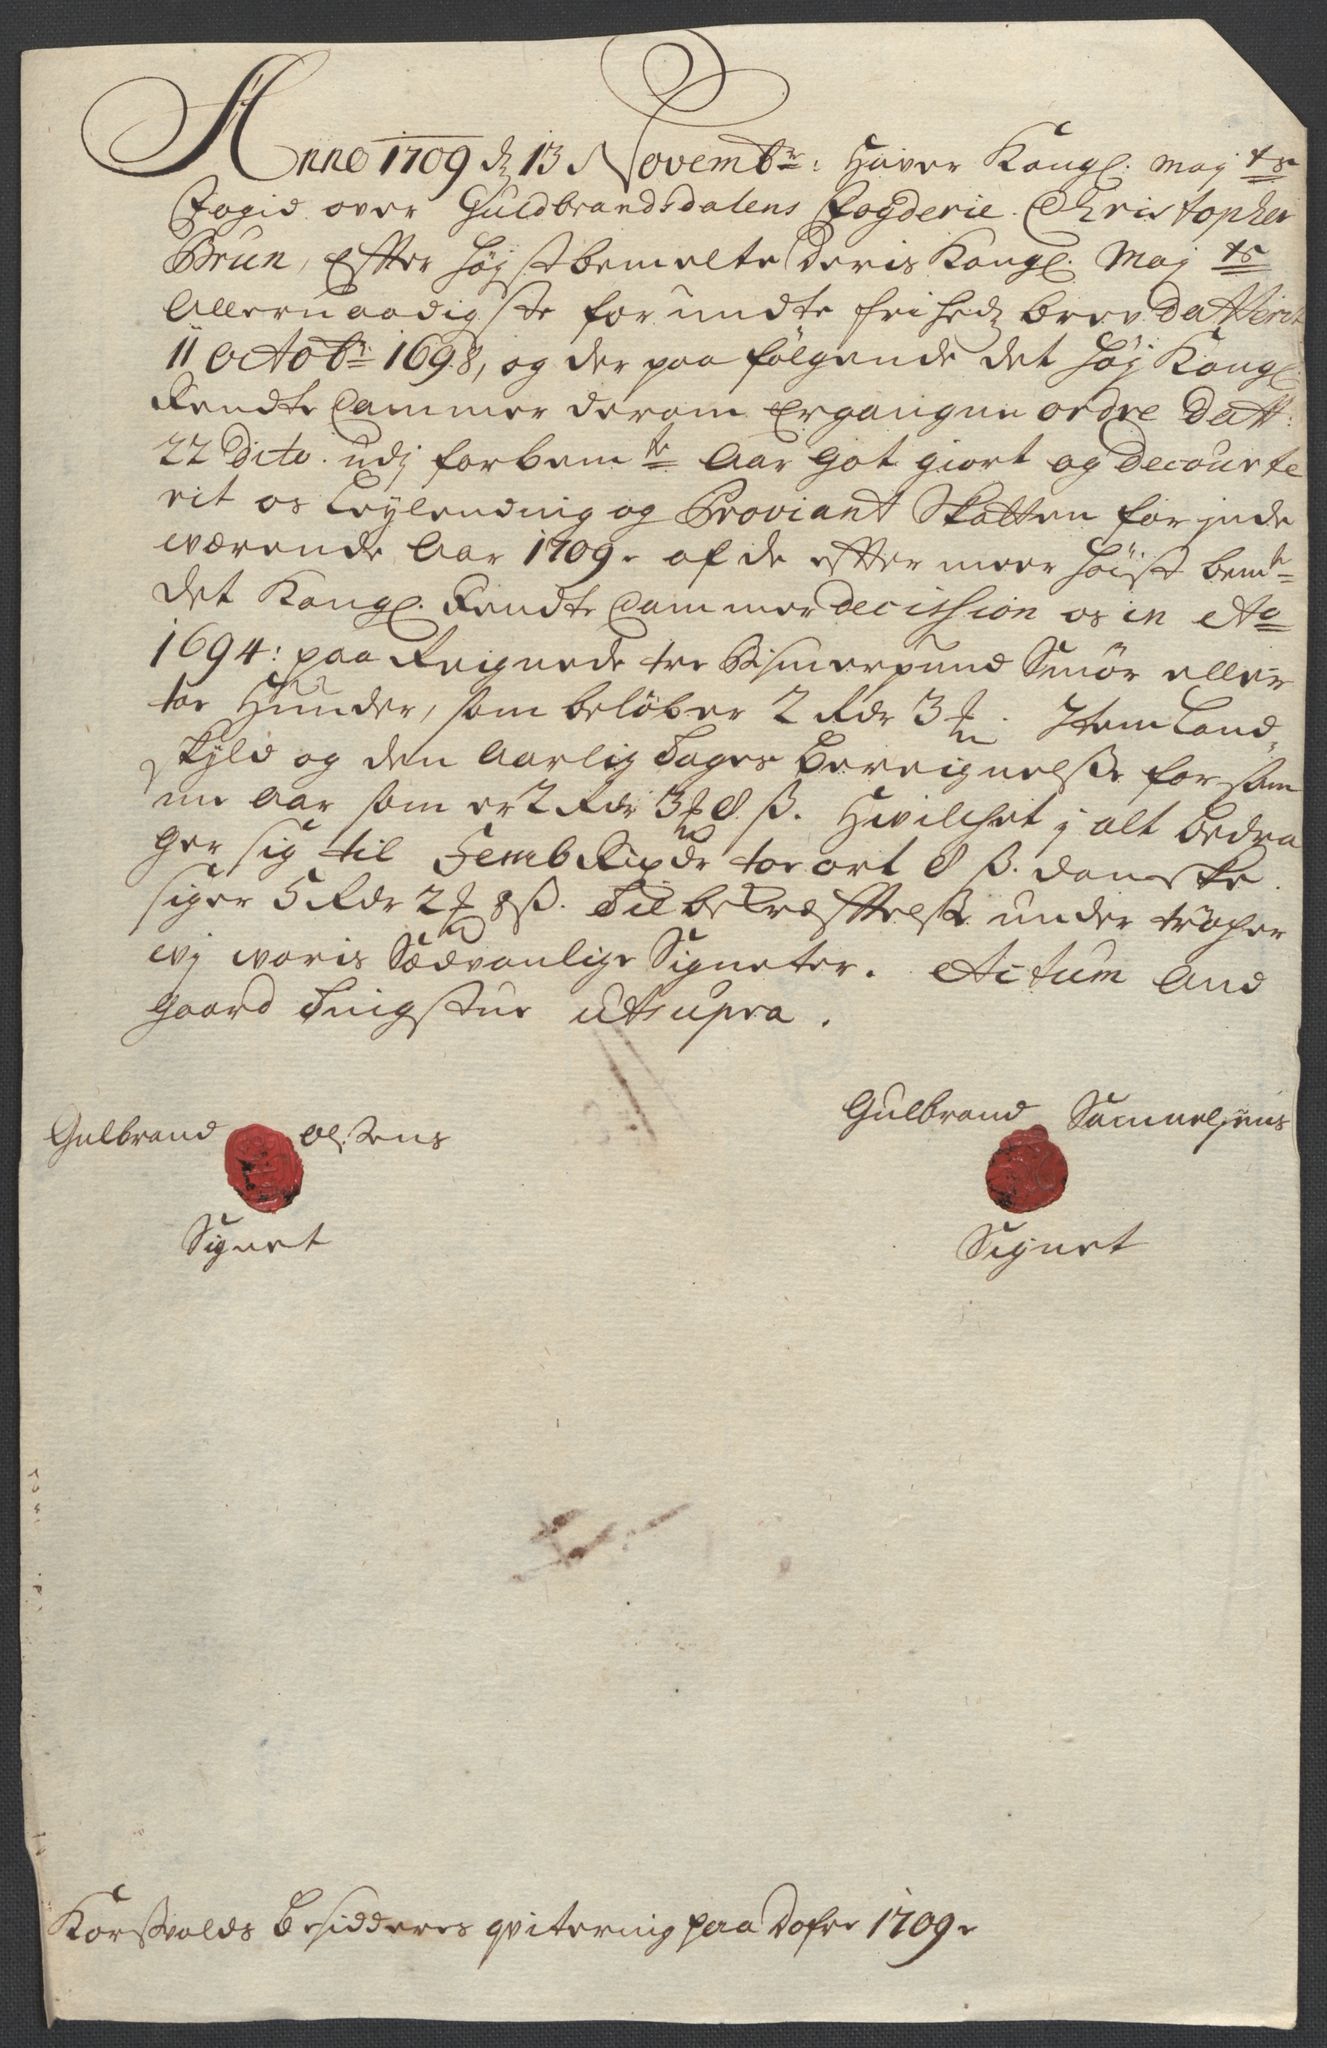 Anno 1709 dz 13 Novembr: Haver Kongl. Maj ts
Fogid over Guldbrandsdalens Fogderie. Christopher
Brun, Efter højstbemelte Deris Kongl. Maj ts
Allernaadigste forundte friheds brev Datterit
11 Octobr: 1698, og der paa følgende det høj Kongl.
Rendte Cammer derom Ergangne ordre Datt:
22 Dito. udj forbemte Aar got giort og Decourte
rit os Leylending og Proviant Skatten for inde
wærende Aar 1709. af de efter meer høist bemte
Det Kongl. Rendte Cammer Decission os in Ao
1694: paa Reignede tre Bismerpund Smør eller
toe Hunder, som beløber 2 Rdr 3 ₰. Item Land
skyld og den Aarlig Tages Bereignelse for sam
me Aar som er 2 Rdr 3 ₰ 8 ß. Hwilchet j alt bedra
ger sig til Femb Rixdr toe ort 8 ß. danske.
siger 5 Rdr 2 ₰ 8 ß. Til bekræftelse under trøcher
wj woris Sædvanlige Signeter. Actum And
gaard Tingstue ut supra.
Gulbrand Olsens
Signet
Gulbrand Samuelsens
Signet
Korsvolds Besidderes qvitering paa Dofre 1709.